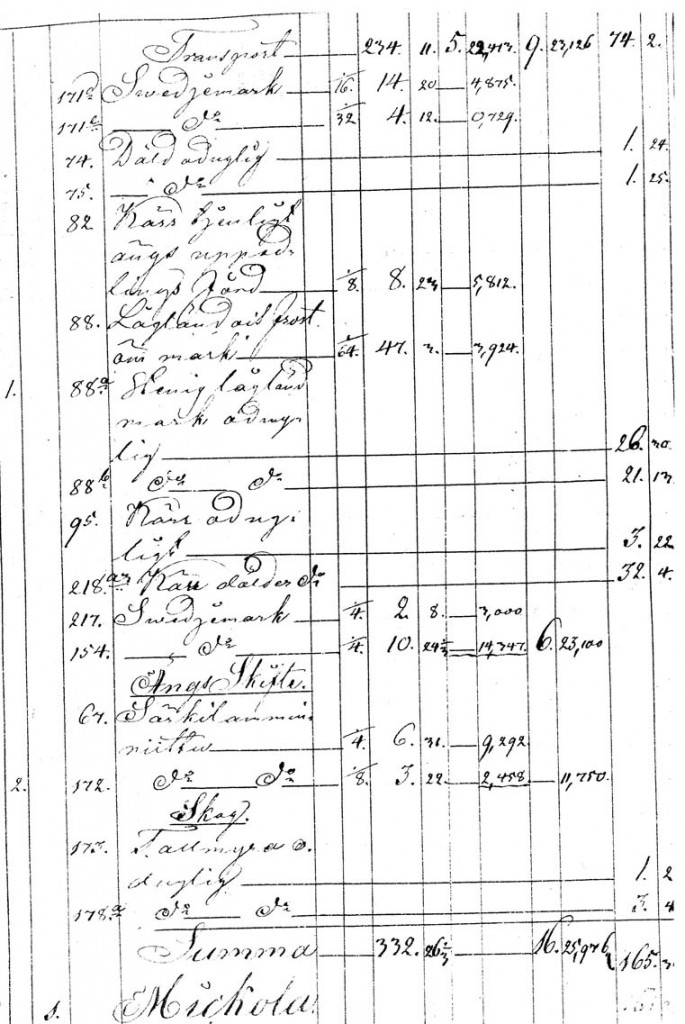 Transport 234. 11. 5. 22,413. 9. 23,126 74 2.
171 Swedjemark 1/16. 14. 20 4,875.
171 Do 1/32 4. 12. 0,729.
74. Dåld oduglig 1. 24.
75. Do 1. 25.
82 Kärr tjenligt
ängs uppod-
lings Jord 1/8. 8. 23 5,812.
88. Lågländ
mark 1/64. 47. 3. 3,924.
1. 88a Stenig lågländ
mark odug-
lig 26. 30.
88b Do Do 21. 13
95. Kärr odug-
ligt 3. 22
218. Kärr dålder Do 32. 4.
217. Swedjemark 1/4. 2. 8. 3,000
154. Do 1/4. 10. 14,347. 6. 23,100
Ängs Skifte.
67. Särkilammin
niittu 1/4. 6. 31. 9,292.
2. 172. Do Do 1/8. 3. 22. 2,458 11,750.
Skog.
173. Tallmyra o-
duglig 1. 2
178.a Do Do 3. 4
Summa 332. 26 2/3 16. 25,976 165. 3.
1. Mickola